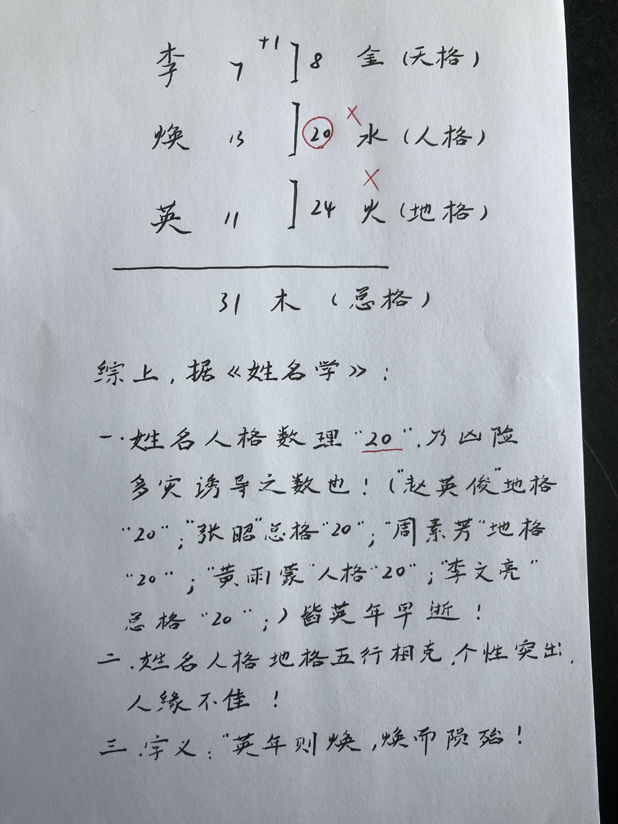 李 7 +1 ] 8 金 (天格)
焕 13 ] 20 × 水 (人格)
英 11 ] 24 × 火 (地格)
31 木 (总格)
综上，据《姓名学》：
一．姓名人格数理“20”，乃凶险
多灾诱导之数也！(“赵英俊”地格
“20”；“张昭”总格“20”；“周素芳”地格
“20”；“黄雨蒙”人格“20”；“李文亮”
总格“20”；) 皆英年早逝！
二．姓名人格地格五行相克，个性突出，
人缘不佳！
三．字义：“英年则焕，焕而陨殆！